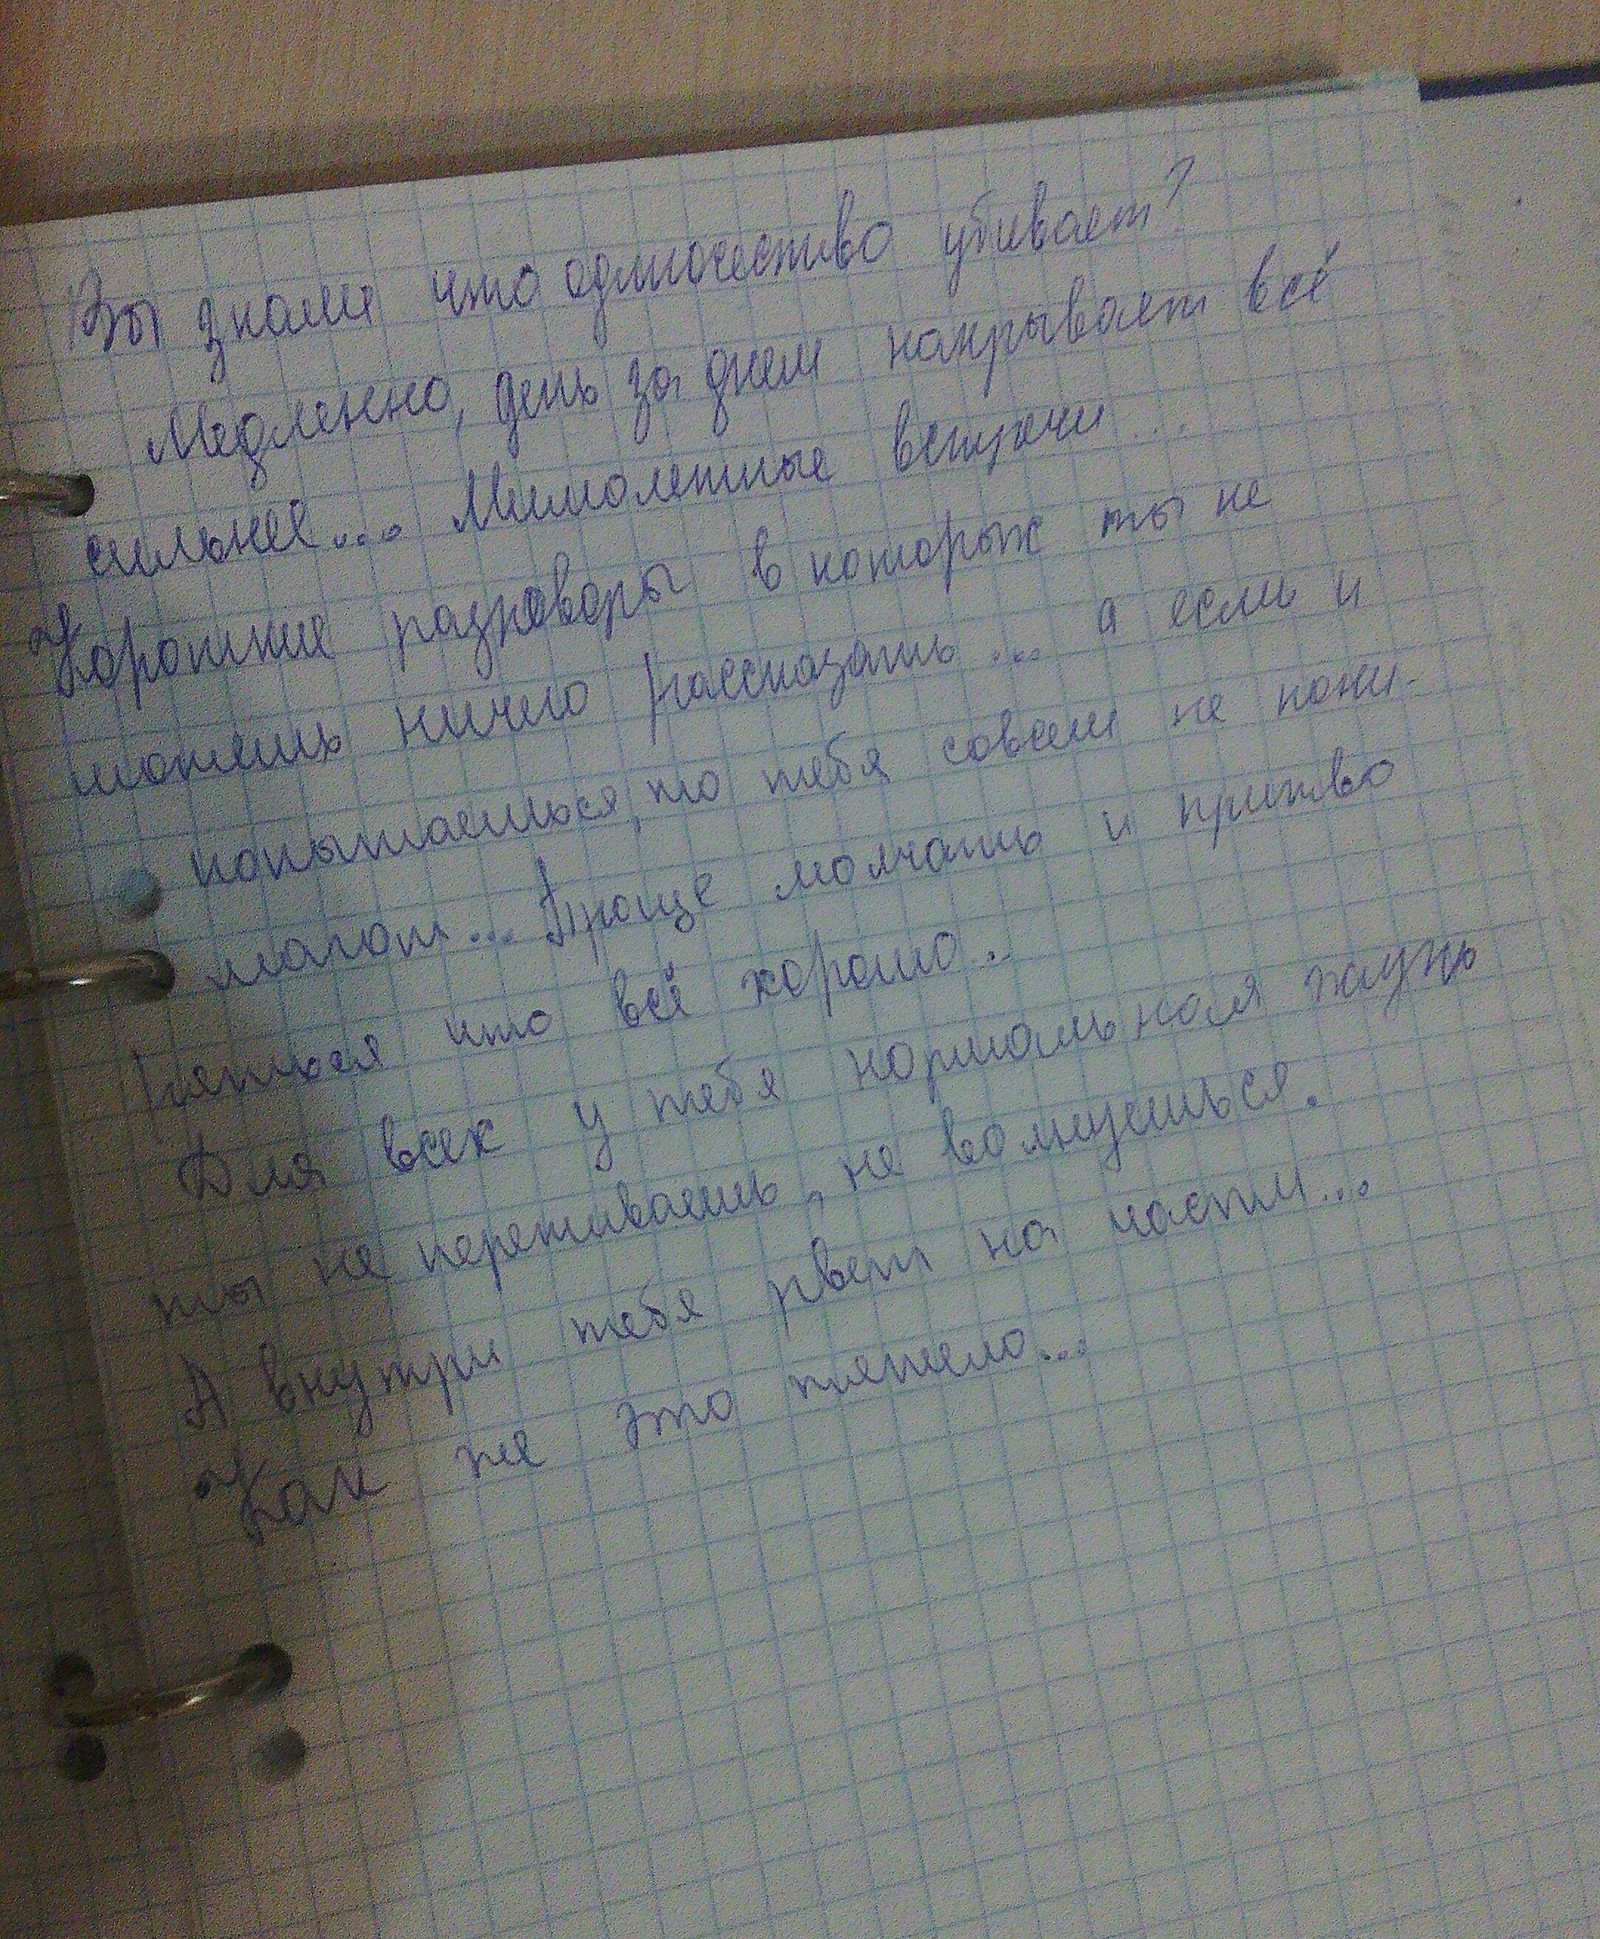 Вы знали что одиночество убивает?
Медленно, день за днем накрывает всё
сильнее... Мимолетные встречи...
Короткие разговоры в которых ты не
можешь ничего рассказать... а если и
попытаешься, то тебя совсем не пони-
мают... Проще молчать и притво
ряться что всё хорошо..
Для всех у тебя нормальная жизнь
ты не переживаешь, не волнуешься.
А внутри тебя рвет на части...
Как же это тяжело...